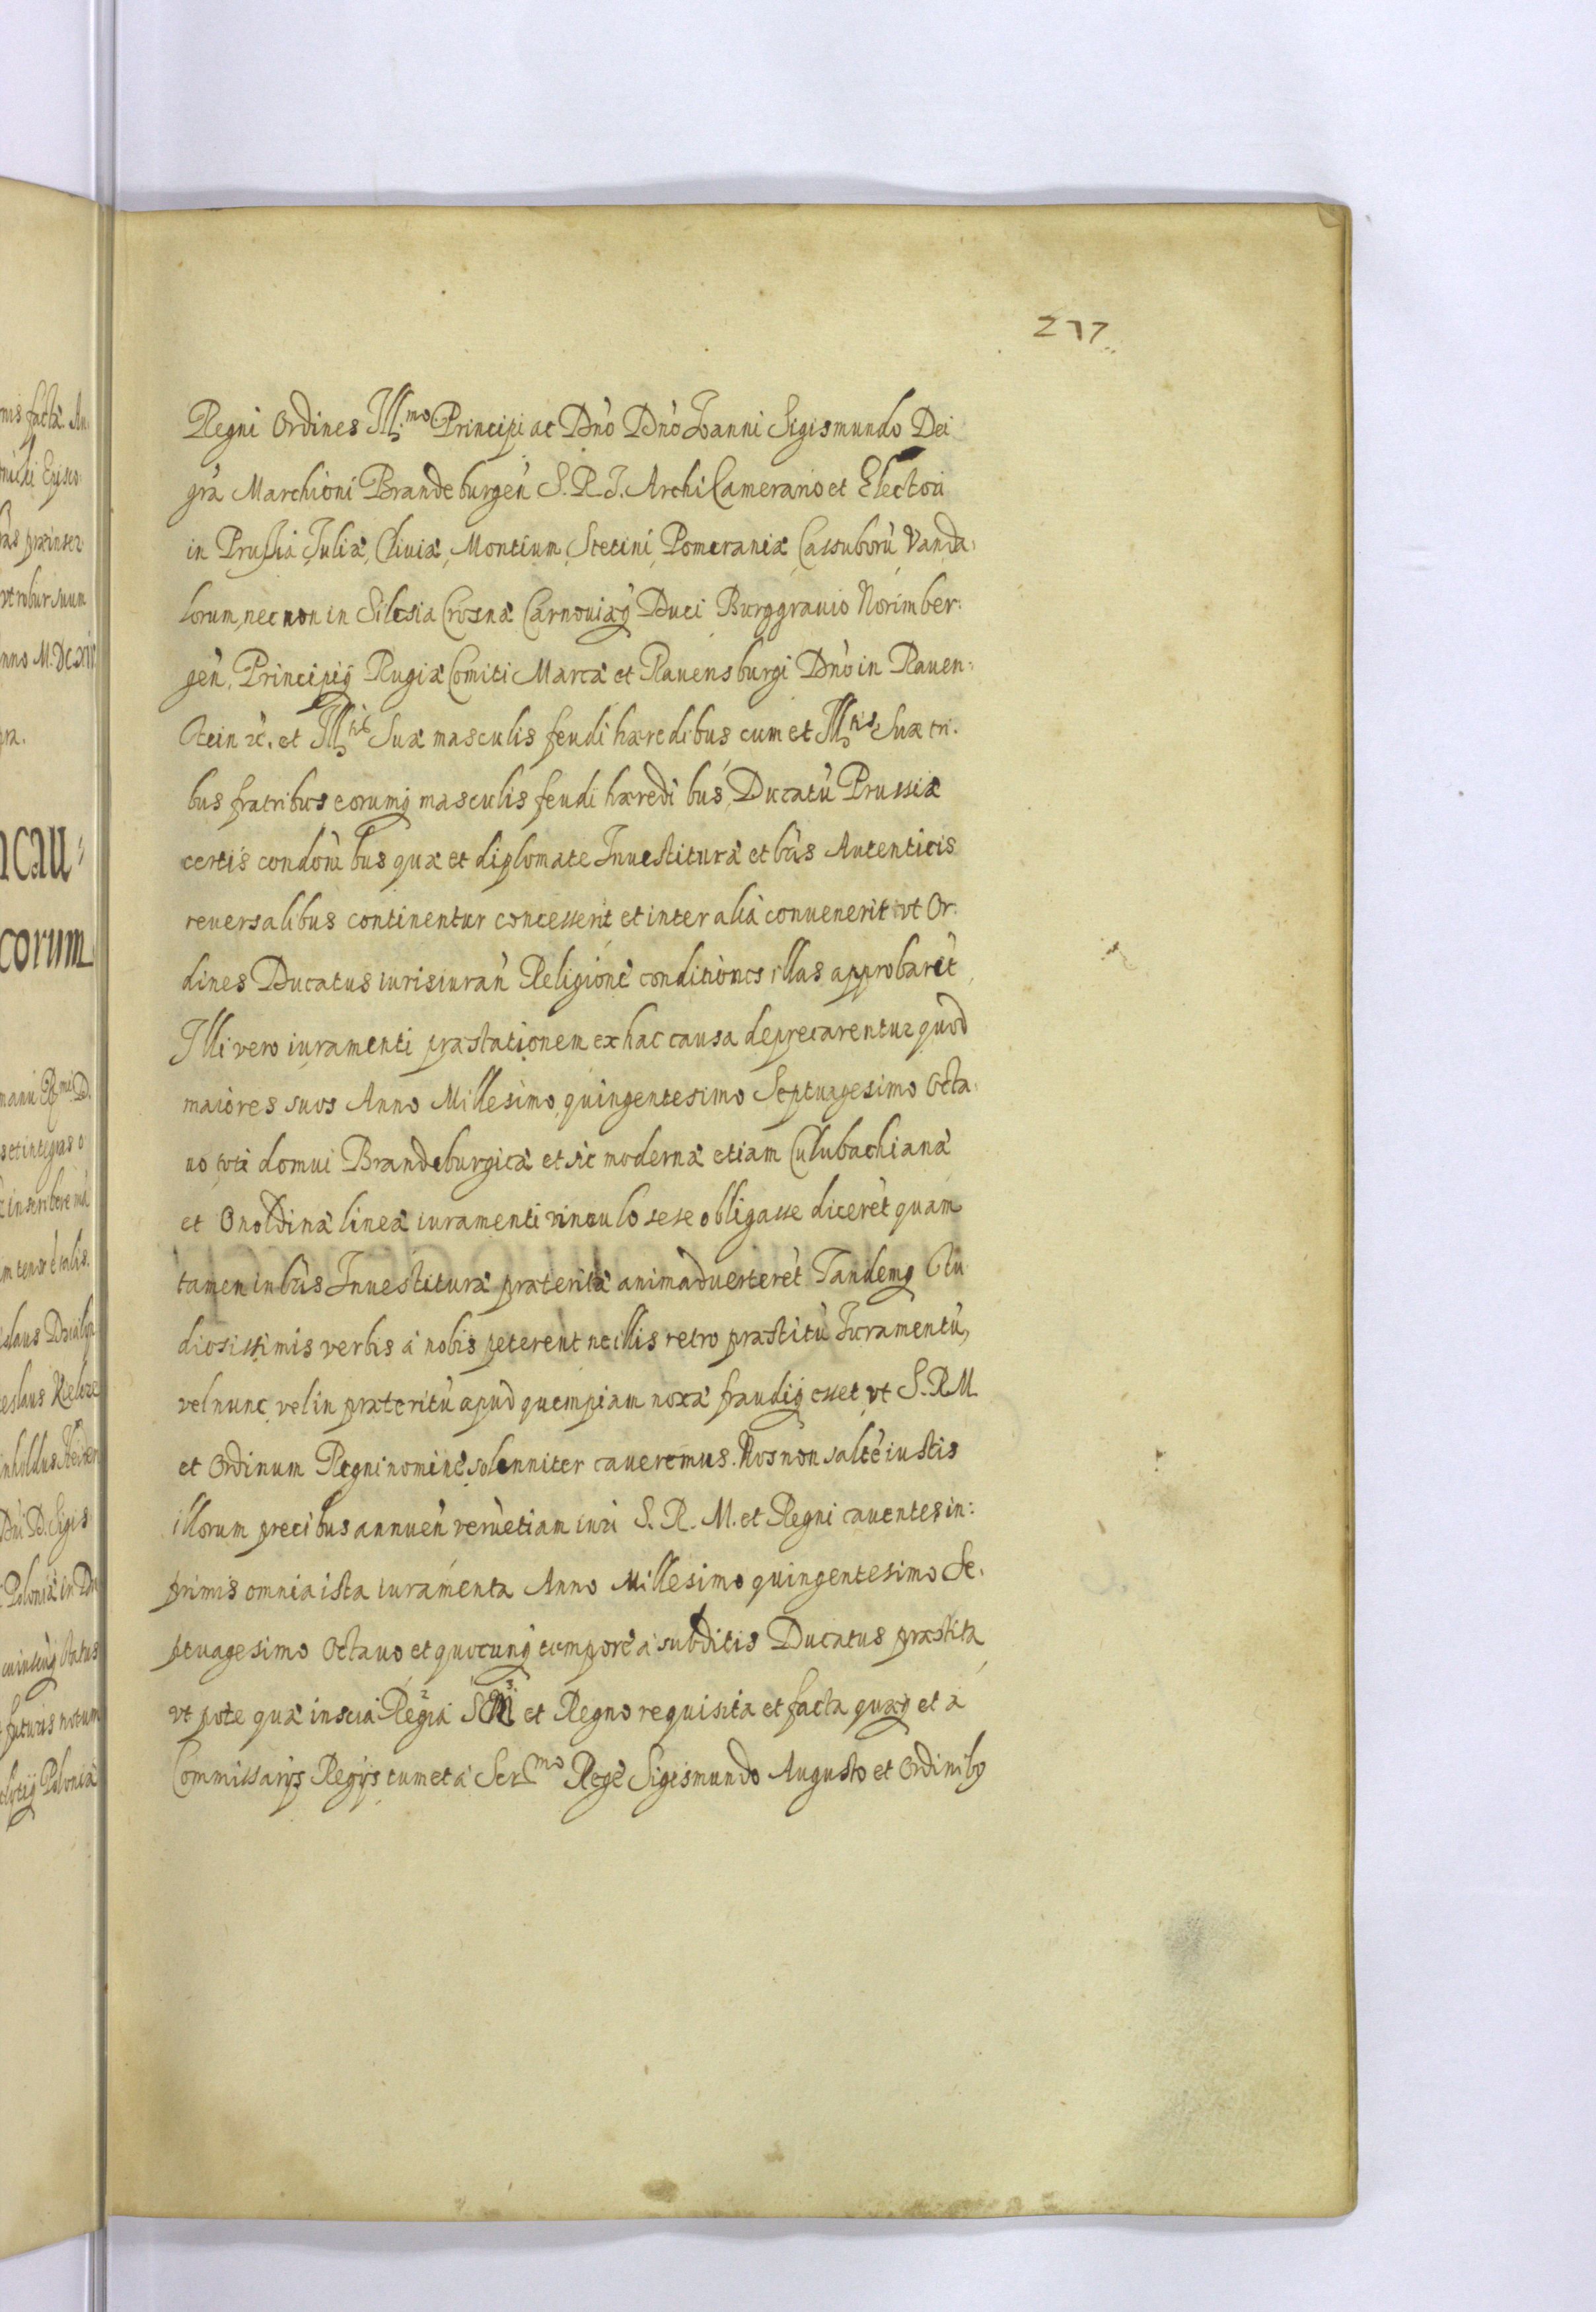 277
Regni Ordines Ill.mo Principi ac Dno Dno Joanni Sigismundo Dei
gra Marchioni Brandeburgen S. R. I. ArchiCamerario et Electori
in Prussia Juliæ, Cliviæ, Montium, Stetini, Pomeraniæ, Cassuborù, Vanda:
lorum, nec non in Silesia Crosnæ Carnouiæq Duci Burggrauio Norimber:
gen, Principiq Rugiæ Comiti Marcæ et Rauensburgi Dno in Rauen:
stein &c. et Ill.tis Suæ masculis feudi hæredibus cum et Ill.tis Suæ tri.
bus fratribus eorumq masculis feudi hæredibus, Ducatù Prussiæ
certis condonibus quæ et diplomate Inuestituræ et lris Autenticis
reuersalibus continentur concesserit et inter alia conuenerit ut Or:
dines Ducatus iurisiuran Religionè conditiones illas approbarèt
Illi vero iuramenti præstationem ex hac causa deprecarentur quod
maiores suos Anno Millesimo quingentesimo Septuagesimo Octa:
uo toti domui Brandeburgicæ et sic modernæ etiam Culubachianæ
et Onoldinæ lineæ iuramenti vinculo sese obligasse dicerèt quam
tamen in lris Inuestituræ præteritæ animaduerterèt Tandemq stu
diosissimis verbis à nobis peterent ne illis retro præstitù Juramentù,
vel nunc, vel in præteritù apud quempiam noxæ fraudiq esset, vt S. R. M.
et Ordinum Regni nominè solenniter caueremus. Nos non saltè iustis
illorum precibus annuen verù etiam iuri S. R. M. et Regni cauentes in:
primis omnia ista iuramenta Anno Millesimo quingentesimo Se.
ptuagesimo Octauo et quocunq temporè à subditis Ducatus præstita
vt pote quæ inscia Regia et Regno requisita et facta quæq et à
Commissarijs Regijs cum et à Ser.mo Rege Sigismundo Augusto et Ordinibq